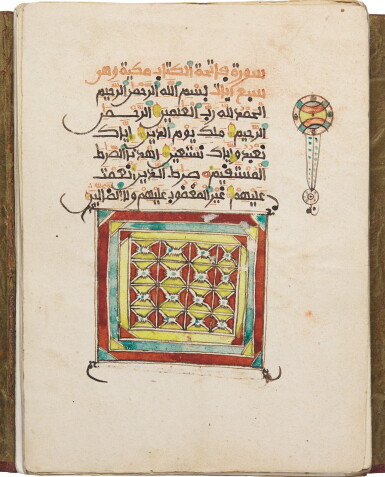 سورة فاتحة الكتاب مكية وهى
سبع ايات بسم الله الرحمن الرحيم
الحمد لله رب العلمين الرحمن
الرحيم ملك يوم الدين اياك
نعبد واياك نستعين اهدنا الصرط
المستقيم صرط الذين انعمت
عليهم غير المغضوب عليهم ولا الضالين